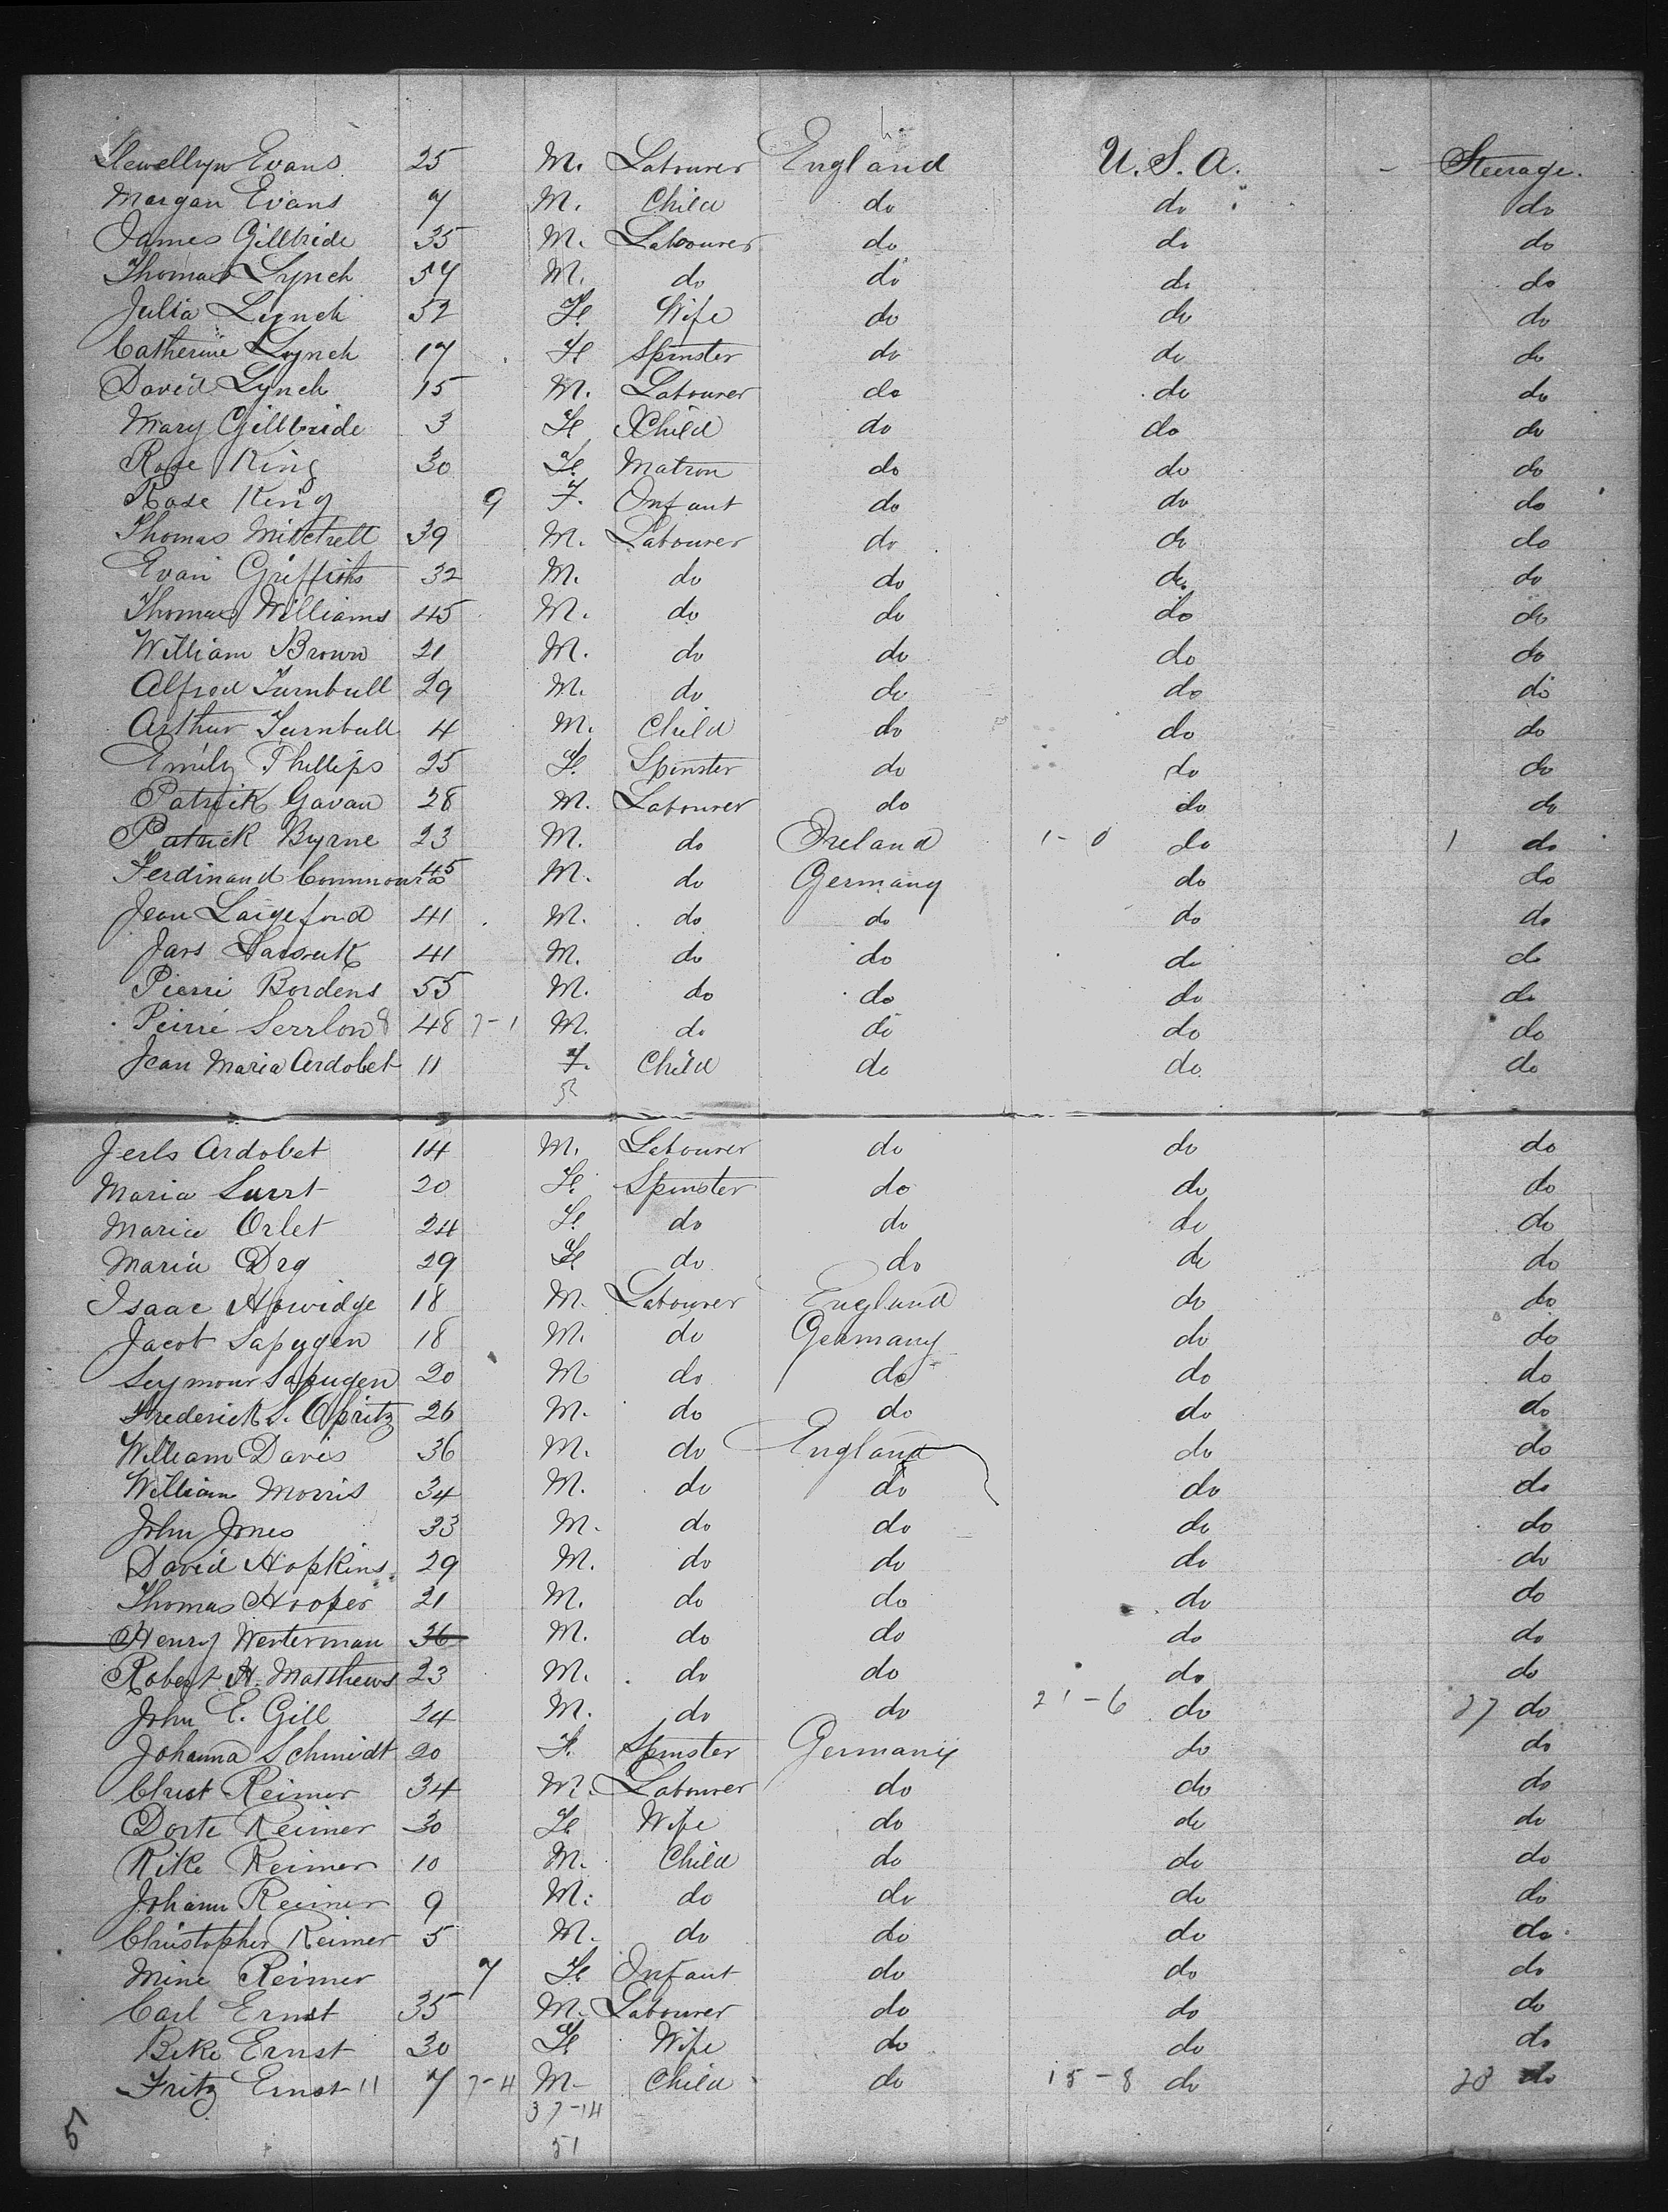 Llewellyn Evans 25 M. Labourer England U.S.A. - Steerage.
Morgan Evans 7 M. Child do do do
James Gillbride 35 M. Labourer do do do
Thomas Lynch 54 M. do do do do
Julia Lynch 52 F. Wife do do do
Catherine Lynch 17 F Spinster do do do
David Lynch 15 M. Labourer do do do
Mary Gillbride 3 F Child do do do
Rose King 30 F. Matron do do do
Rose King 9 F. Infant do do do
Thomas Mitchell 39 M. Labourer do do do
Evan Griffiths 32 M. do do do do
Thomas Williams 45 M. do do do do
William Brown 21 M. do do do do
Alfred Turnbull 29 M. do do do do
Arthur Turnbull 4 M. Child do do do
Emily Phillips 25 F. Spinster do do do
Patrick Gavan 28 M. Labourer do do do
Patrick Byrne 23 M. do Ireland 1-0 do 1 do
Ferdinand 45 M. do Germany do do
Jean Laigeford 41 M. do do do do
Jars 41 M. do do do do
Pierri Bordens 55 M. do do do do
Peirré 48 7-1 M. do do do do
Jean Maria Ardobet 11 F. Child do do do
Jerls Ardobet 14 M. Labourer do do do
Maria 20 F. Spinster do do do
Maria Orlet 24 F. do do do do
Maria Drg 29 F. do do do do
Isaac 18 M. Labourer England do do
Jacob Sapugen 18 M. do Germany do do
Seymour Sapugen 20 M do do do do
Frederick S. Opritz 26 M. do do do do
William Davis 36 M. do England do do
William Morris 34 M. do do do do
John Jones 33 M. do do do do
David Hopkins. 29 M. do do do do
Thomas Hooper 21 M. do do do do
Henry Westerman 36 M. do do do do
Robert H. Matthews 23 M. do do do do
John E. Gill 24 M. do do 21-6 do 27 do
Johanna Schmidt 20 F. Spinster Germany do do
Christ Reimer 34 M. Labourer do do do
Dorte Reimer 30 F Wife do do do
Rike Reimer 10 M. Child do do do
Johann Reimer 9 M. do do do do
Christopher Reimer 5 M. do do do do
Mine Reimer 7 F Infant do do do
Carl Ernst 35 M. Labourer do do do
Beke Ernst 30 F Wife do do do
Fritz Ernst 11 7 7-4 M- Child do 15-8 do 23 do
37-14
5 51